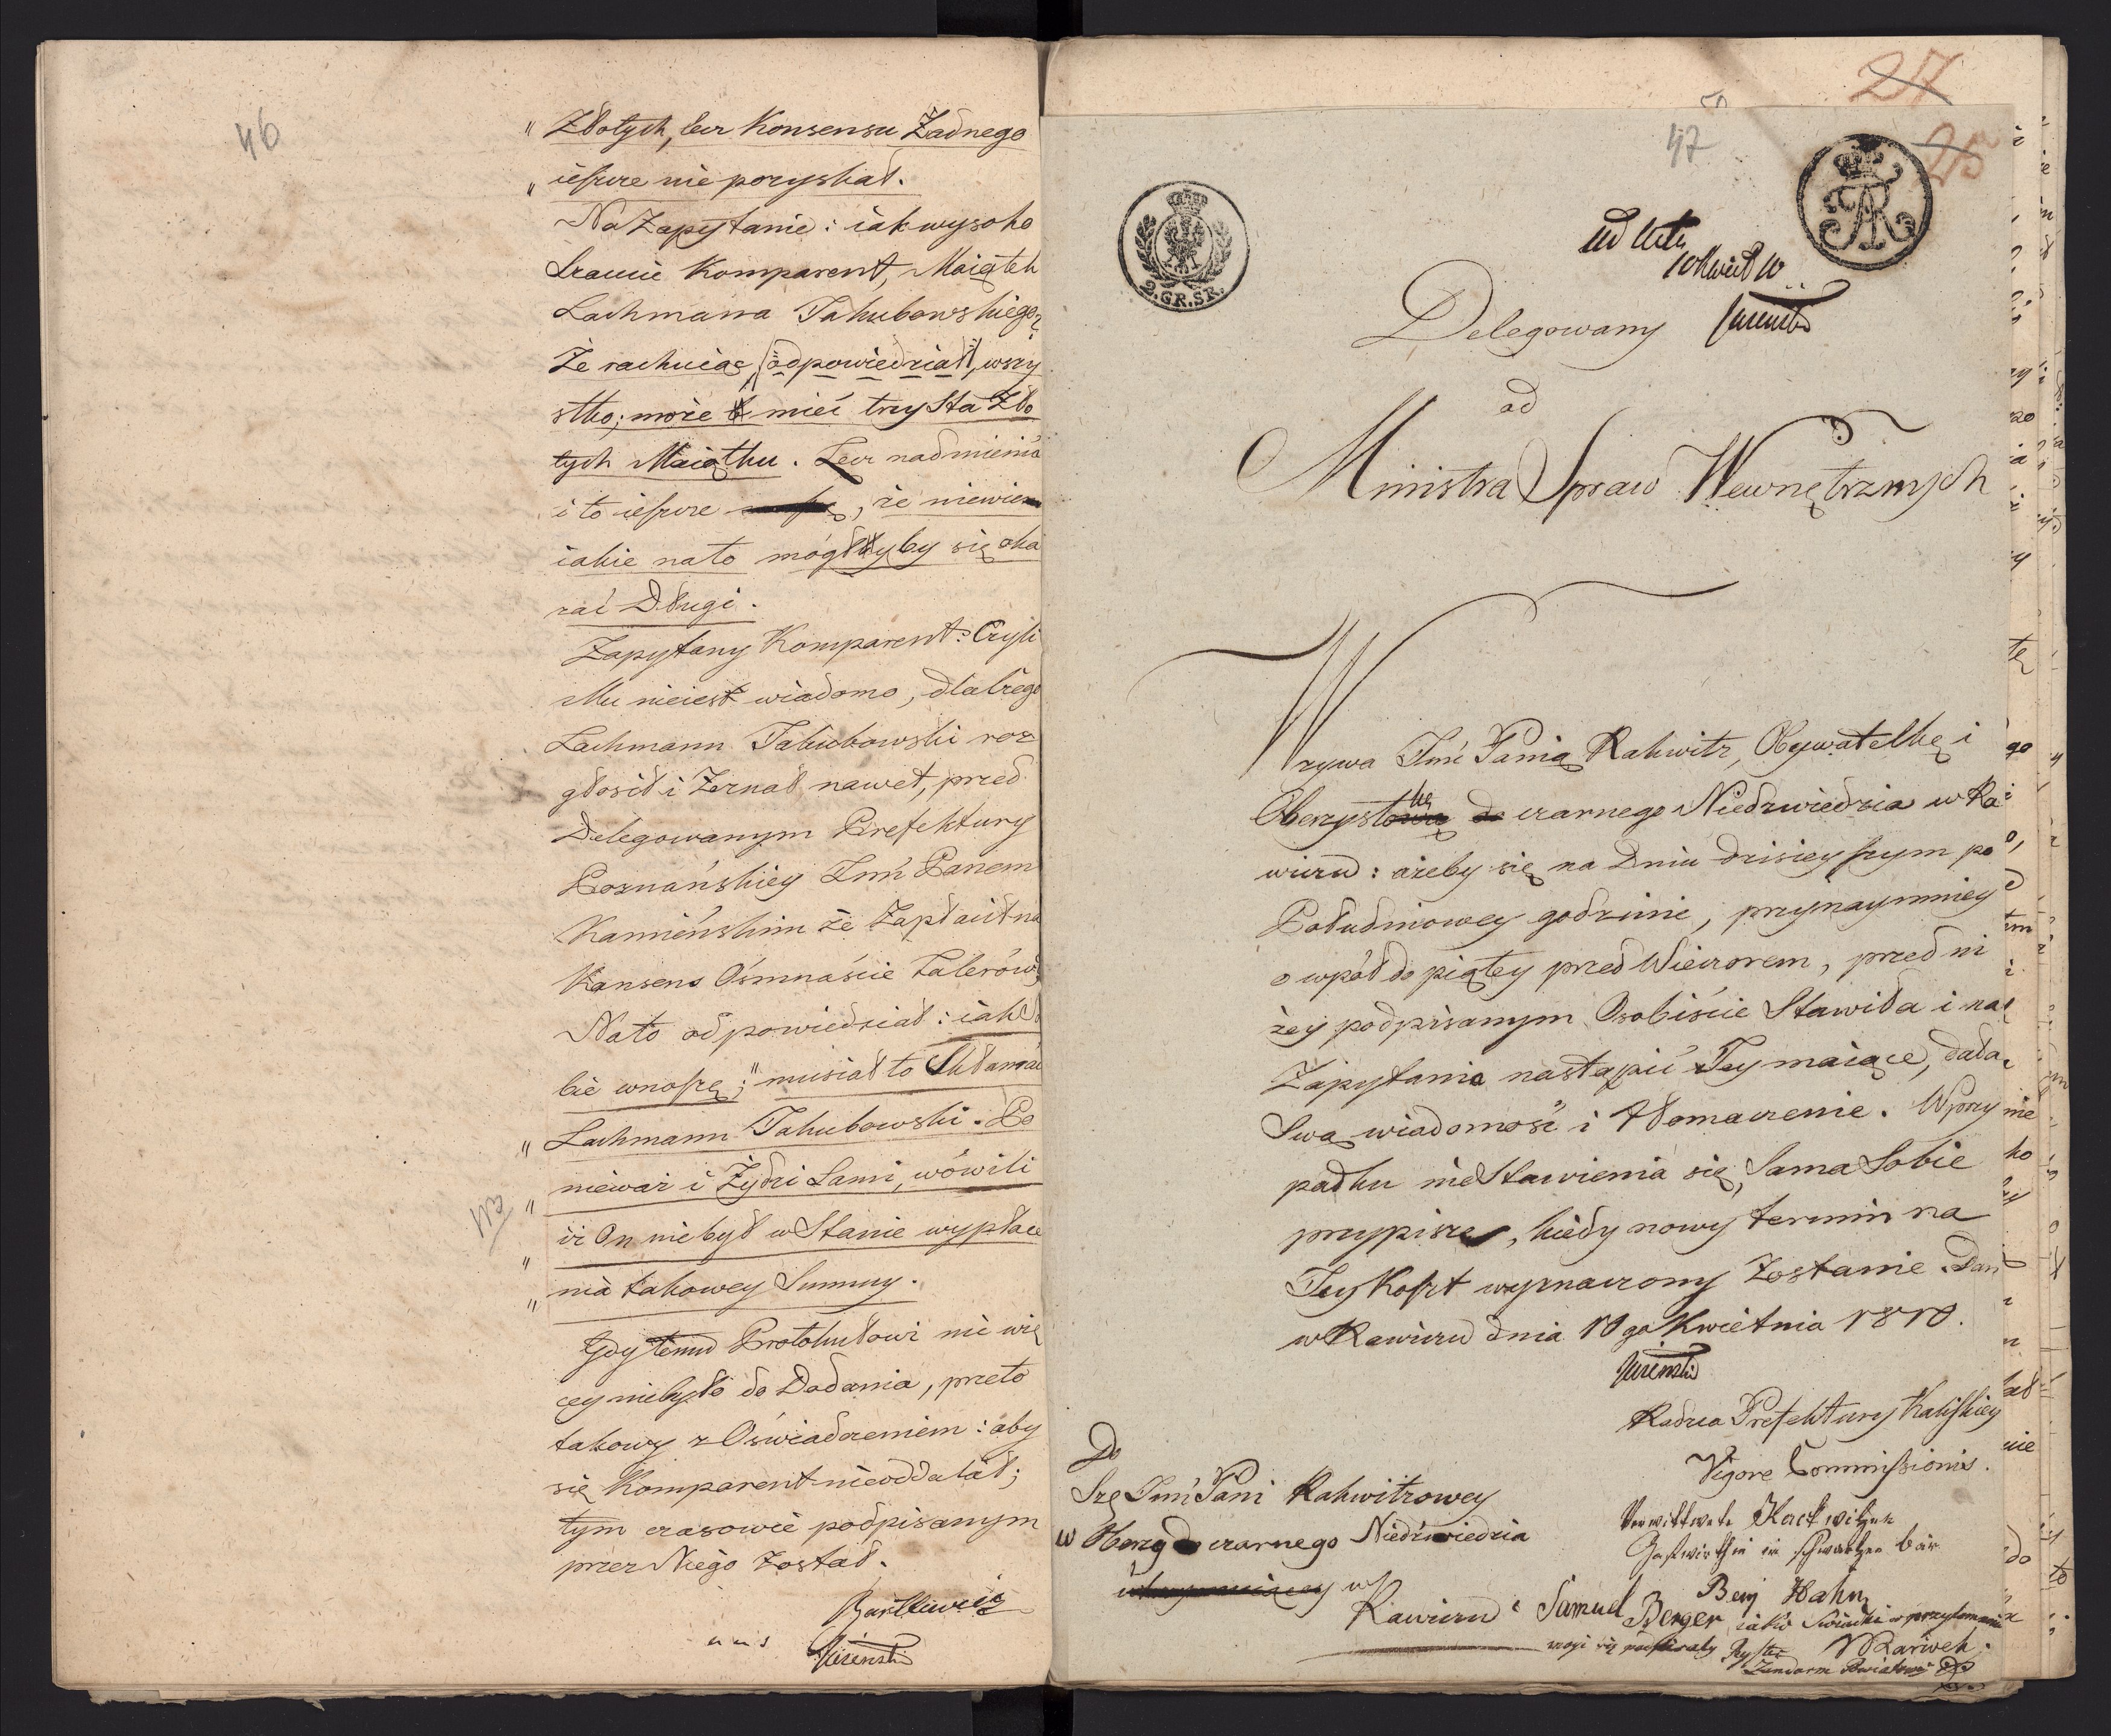 46
" Złotych, lecz Konsensu Żadnego
" ieszcze nie pozyskał.
Na Zapytanie: iak wysoko
Szacuie Komparent, Maiątek
Lachmana Jakubowskiego?
Że rachuiąc, /:odpowiedział:/, wszy
stko; może mieć trzysta Zło
tych Maiątku. Lecz nadmienia
i to ieszcze, że niewiem
iakie na to mogłyby się oka
zać Długi.
Zapytany Komparent: Czyli
Mu nieiest wiadomo, dla czego
Lachmann Jakubowski roz
głosił i Zeznał nawet, przed
Delegowanym Prefektury
Poznańskiey Jmć Panem
Kamieńskim że Zapłacił na
Konsens Ośmnaście Talerów?
Na to odpowiedział: iak So
bie wnoszę; "musiał to Skłamać
" Lachmann Jakubowski. Po
" nieważ i Żydzi Sami, mówili
NB
" iż On nie był w Stanie wypłace
" nia takowey Summy.
Gdy temu Protokułowi nic wię
cey niebyło do Dodania, przeto
takowy z Oświadczeniem: aby
się Komparent nieoddalał;
tym czasowie podpisanym
przez Niego Został.
Bartkiewicz
u u s
27
5
47
25
2.GR.SR.
Delegowany
od
Ministra Spraw Wewnętrznych
Wzywa Jmć Panią Rakwitz, Obywatelkę i
Oberzystkę czarnego Niedzwiedzia w Ra
wiczu: ażeby się na Dniu dzisieyszym po
Południowey godzinie, przynaymniey
o wpół do piątey przed Wieczorem, przed ni
żey podpisanym Osobiście Stawiła i na
Zapytania nastąpić Jey maiące, dała
Swą wiadomość i tłomaczenie. W przy
padku nie Stawienia się, Sama Sobie
przypisze, kiedy nowy termin na
Jey Koszt wyznaczony Zostanie. Dan
w Rawiczu dnia 10go Kwietnia 1810.
Radca Prefektury Kaliskiey
Vigore Commissionis.
Do
Jmć Pani Rakwitzowey
w Oberzy czarnego Niedźwiedzia
w
Rawiczu
Verwittwete Rackwitzen
Gastwirthin im schwartzen bär
Benj Hahn
Samuel Berger, iako Świadki w przytomności
moji się podpisały
Żandarm Powiatowy